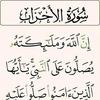 سُورَةُ الْأَحْزَابِ
إِنَّ اللَّهَ وَمَلَٰٓئِكَتَهُۥ
يُصَلُّونَ عَلَى النَّبِيِّ يَٰٓأَيُّهَا
الَّذِينَ ءَامَنُوا۟ صَلُّوا۟ عَلَيْهِ